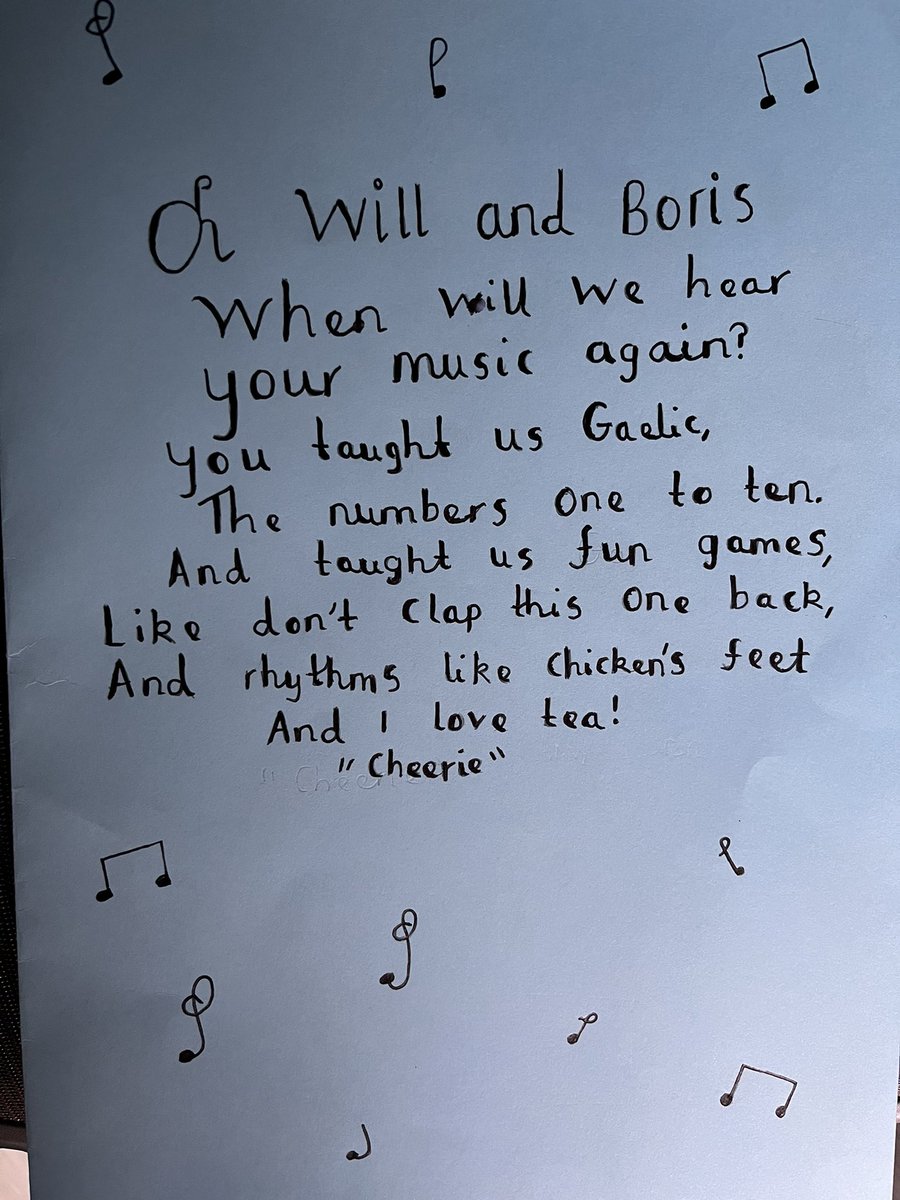 Oh Will and Boris
When will we hear
your music again?
you taught us Gaelic,
The numbers one to ten.
And taught us fun games,
Like don't clap this one back,
And rhythms like chicken's feet
And I love tea!
"Cheerie"